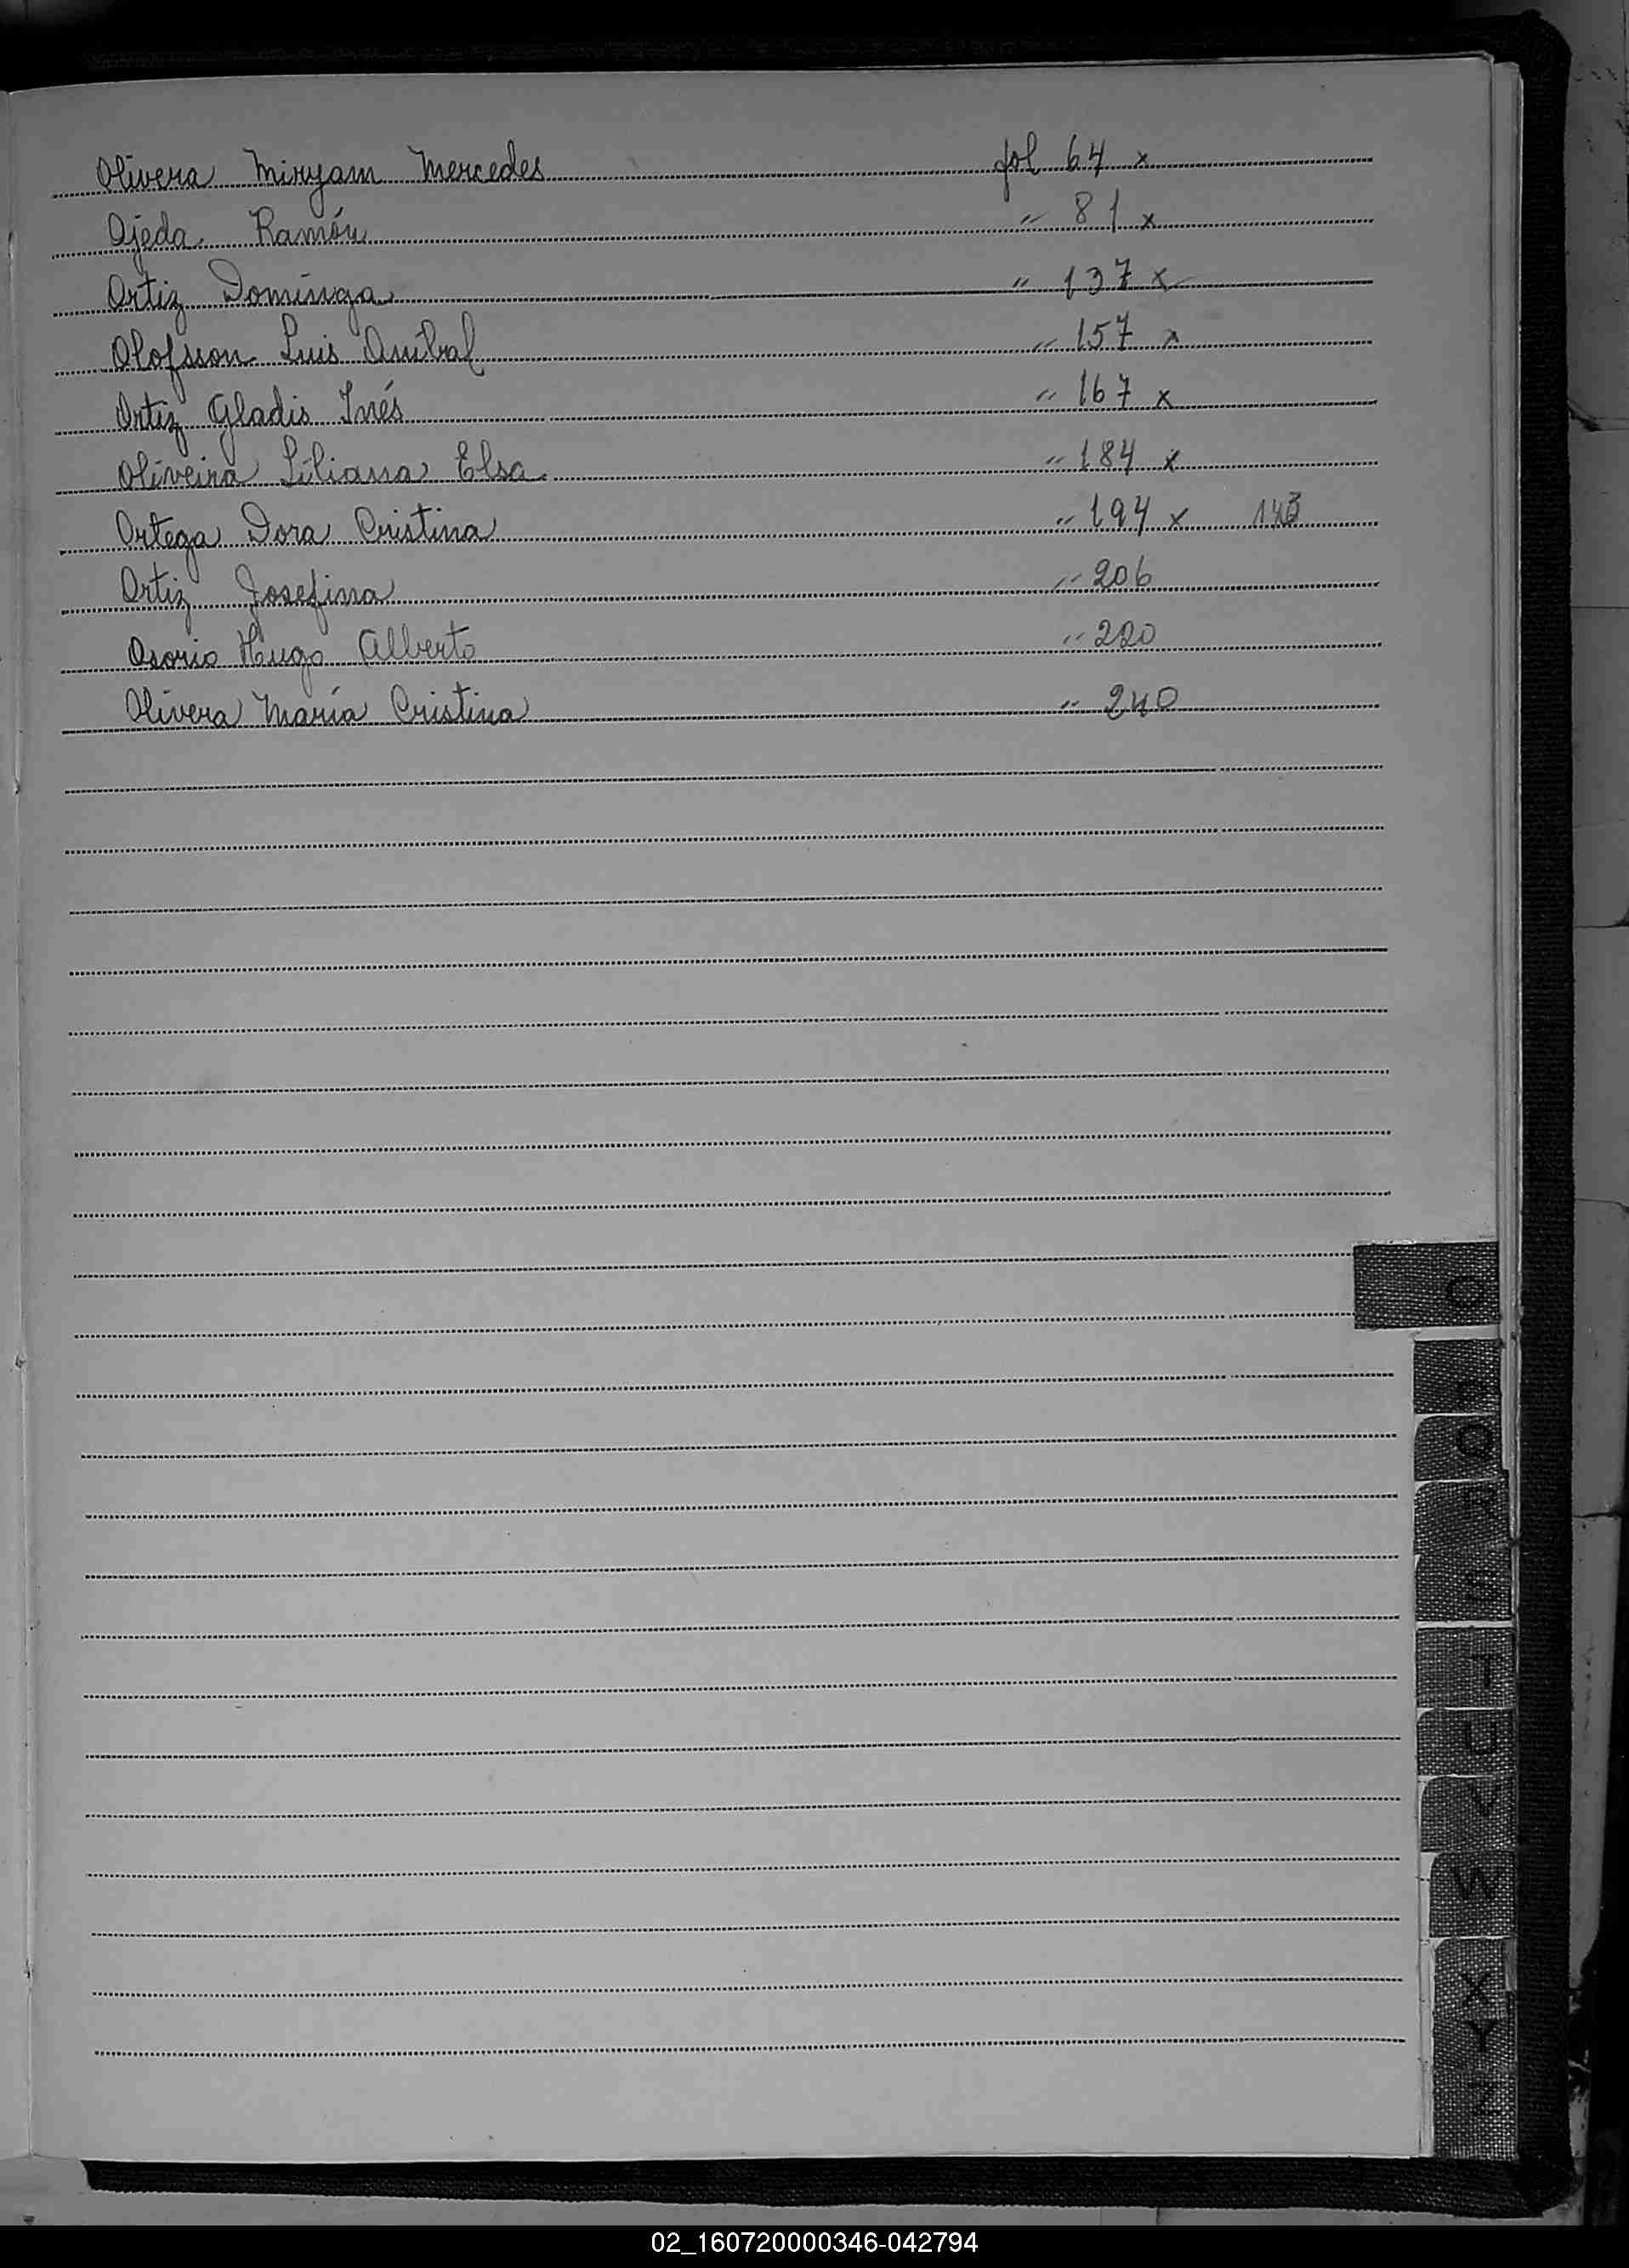 Olivera Miryam Mercedes fol 64 x
Ojeda Ramón " 81 x
Ortiz Dominga " 137 x
Olofsson Luis Anibal " 157 x
Ortiz Gladis Inés " 167 x
Oliveira Liliana Elsa " 184 x
Ortega Dora Cristina " 194 x 143
Ortiz Josefina " 206
Osorio Hugo Alberto " 220
Olivera María Cristina " 240
O
P
Q
R
S
T
U
V
W
X
Y
Z
02_160720000346-042794